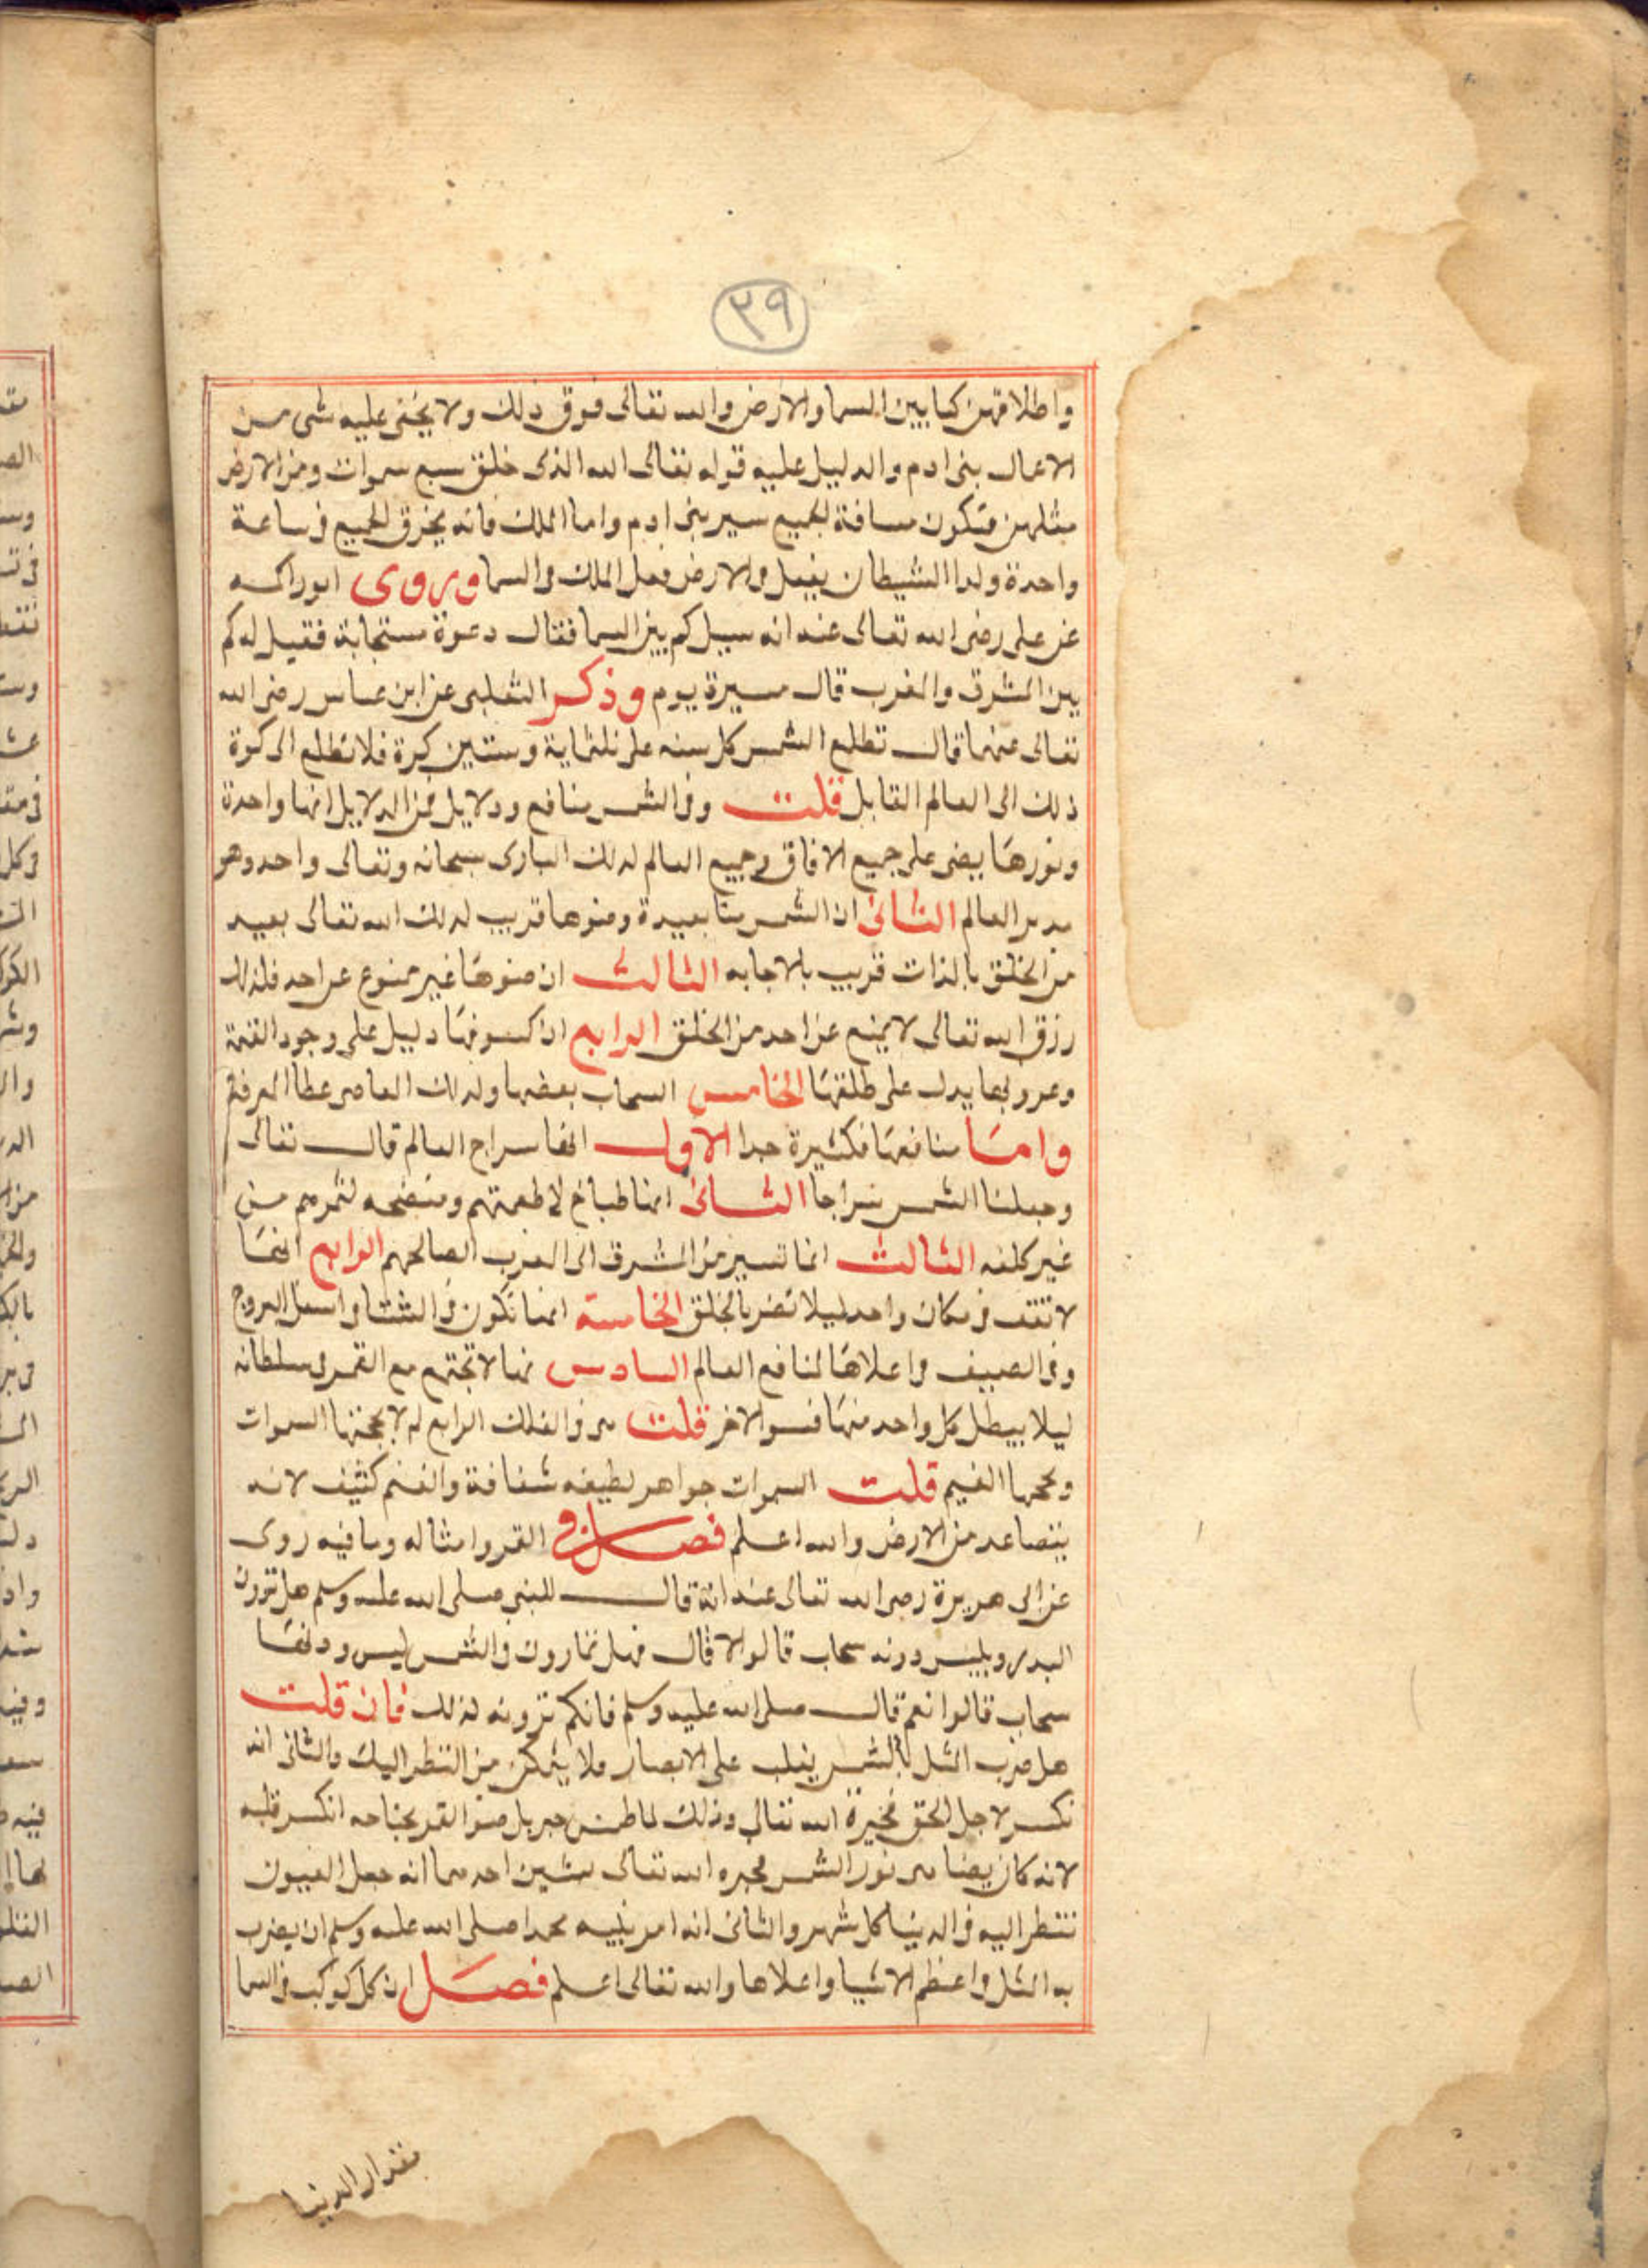 ٣٩
واطلاقهن كما بين السما والارض والله تعالى فوق ذلك ولا يخفى عليه شى من
الاعمال بنى ادم والدليل عليه قوله تعالى الله الذى خلق سبع سموات ومن الارض
مثلهن فتكون مسافة الجميع سير بنى ادم واما الملك فانه يخرق الجميع فى ساعة
واحدة ولذا الشيطان يفعل فى الارض فعل الملك فى السما وروى ابوراكه
عن على رضى الله تعالى عنه انه سيل كم بين السما فقال دعوة مستجابة فقيل له كم
بين المشرق والمغرب قال مسيرة يوم وذكر الثعلبى عن ابن عباس رضى الله
تعالى عنهما قال تطلع الشمس كل سنه على ثلثماية وستين كرة فلا تطلع الى كوة
ذلك الى العالم القابل قلت وفى الشمس منافع ودلايل فمن الدلايل انها واحدة
ونورها يضى على جميع الافاق وجميع العالم لذلك البارى سبحانه وتعالى واحد وهو
مدبر العالم الثانى ان الشمس منا بعيدة وضوها قريب لذلك الله تعالى بعيد
من الخلق بالذات قريب بالاجابه الثالث ان ضوها غير ممنوع عن احد فلذلك
رزق الله تعالى لا يمنع عن احد من الخلق الرابع ان كسوفها دليل على وجود القيمة
وغروبها يدل على ظلمتها الخامس السحاب بعضها ولذلك المعاصى غطا المعرفة
واما منافعها فكثيرة جدا الاول انها سراج العالم قال تعالى
وجعلنا الشمس سراجا الثانى انها طباخ لاطعمتهم ومنضجه لثمرهم من
غير كلفه الثالث انها تسير من المشرق الى المغرب لمصالحهم الرابع انها
لا تقف فى مكان واحد ليلا تضر بالخلق الخامسة انها تكون فى الشتا فى اسفل البروج
وفى الصيف فى اعلاها لمنافع العالم السادس انها لا تجتمع مع القمر فى سلطانه
ليلا يبطل كل واحد منها ضو الاخر قلت هى فى الفلك الرابع لم لا يحجبها السموات
ويحجبها الغيم قلت السموات جواهر لطيفه شفافة والغيم كثيف لانه
يتصاعد من الارض والله اعلم فصل فى القمر وامثاله وما فيه روى
عن ابى هريرة رضى الله تعالى عنه انه قال للنبى صلى الله عليه وسلم هل ترون
البدر وليس دونه سحاب قالوا لا قال فهل تمارون فى الشمس ليس دونها
سحاب قالوا نعم قال صلى الله عليه وسلم فانكم ترونه كذلك فان قلت
هل ضرب المثل بالشمس يغلب على الابصار فلا يتمكن من النظر اليك والثانى انه
نكسر لاجل الحق فخيرة الله تعالى وذلك لما طمس جبريل ضو القمر بجناحه انكسر قلبه
لانه كان يضاهى نور الشمس فجبره الله تعالى بشيين احدهما انه جعل العيون
تنظر اليه فى الدنيا كل شهر والثانى انه امر نبيه محمدا صلى الله عليه وسلم ان يضرب
به المثل فى اعظم الاشيا واعلاها والله تعالى اعلم فصل ان كل كوكب فى السما
مقدار الدنيا